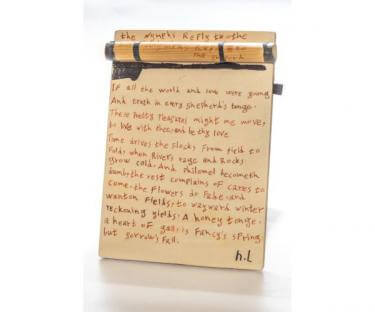 the Nymphs Reply to the
If all the world and love were young
And truth in every shepherd's tonge.
These Pretty Pleasures might me move,
to We with thee, and be thy love
Time drives the flocks from field to
Fold; when Rivers rage and Rocks
grow cold; And Philomel becometh
dumb; the rest complains of cares to
come. the Flowers do Fade, and
wanton Fields; to wayward winter
reckoning yields; A honey tonge.
a heart of gall; is Fancy's spring
but sorrows Fall.
h.L